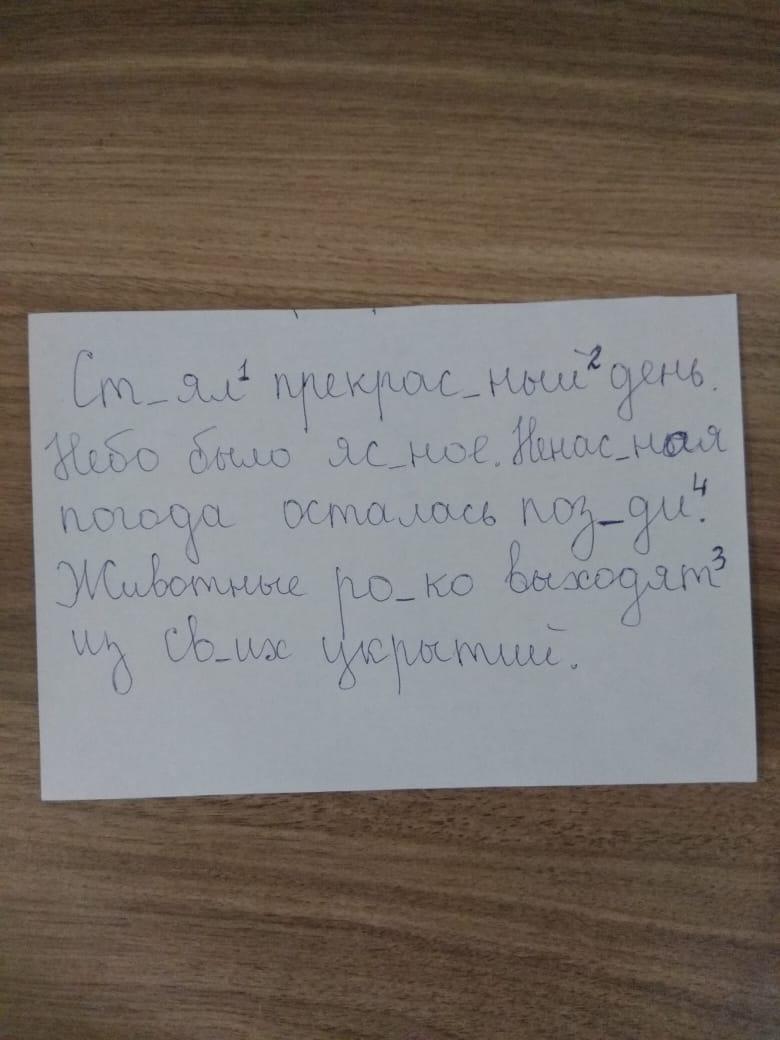 Ст_ял¹ прекрас_ный² день.
Небо было яс_ное. Ненас_ная
погода осталась поз_ди⁴.
Животные ро_ко выходят³
из св_их укрытий.